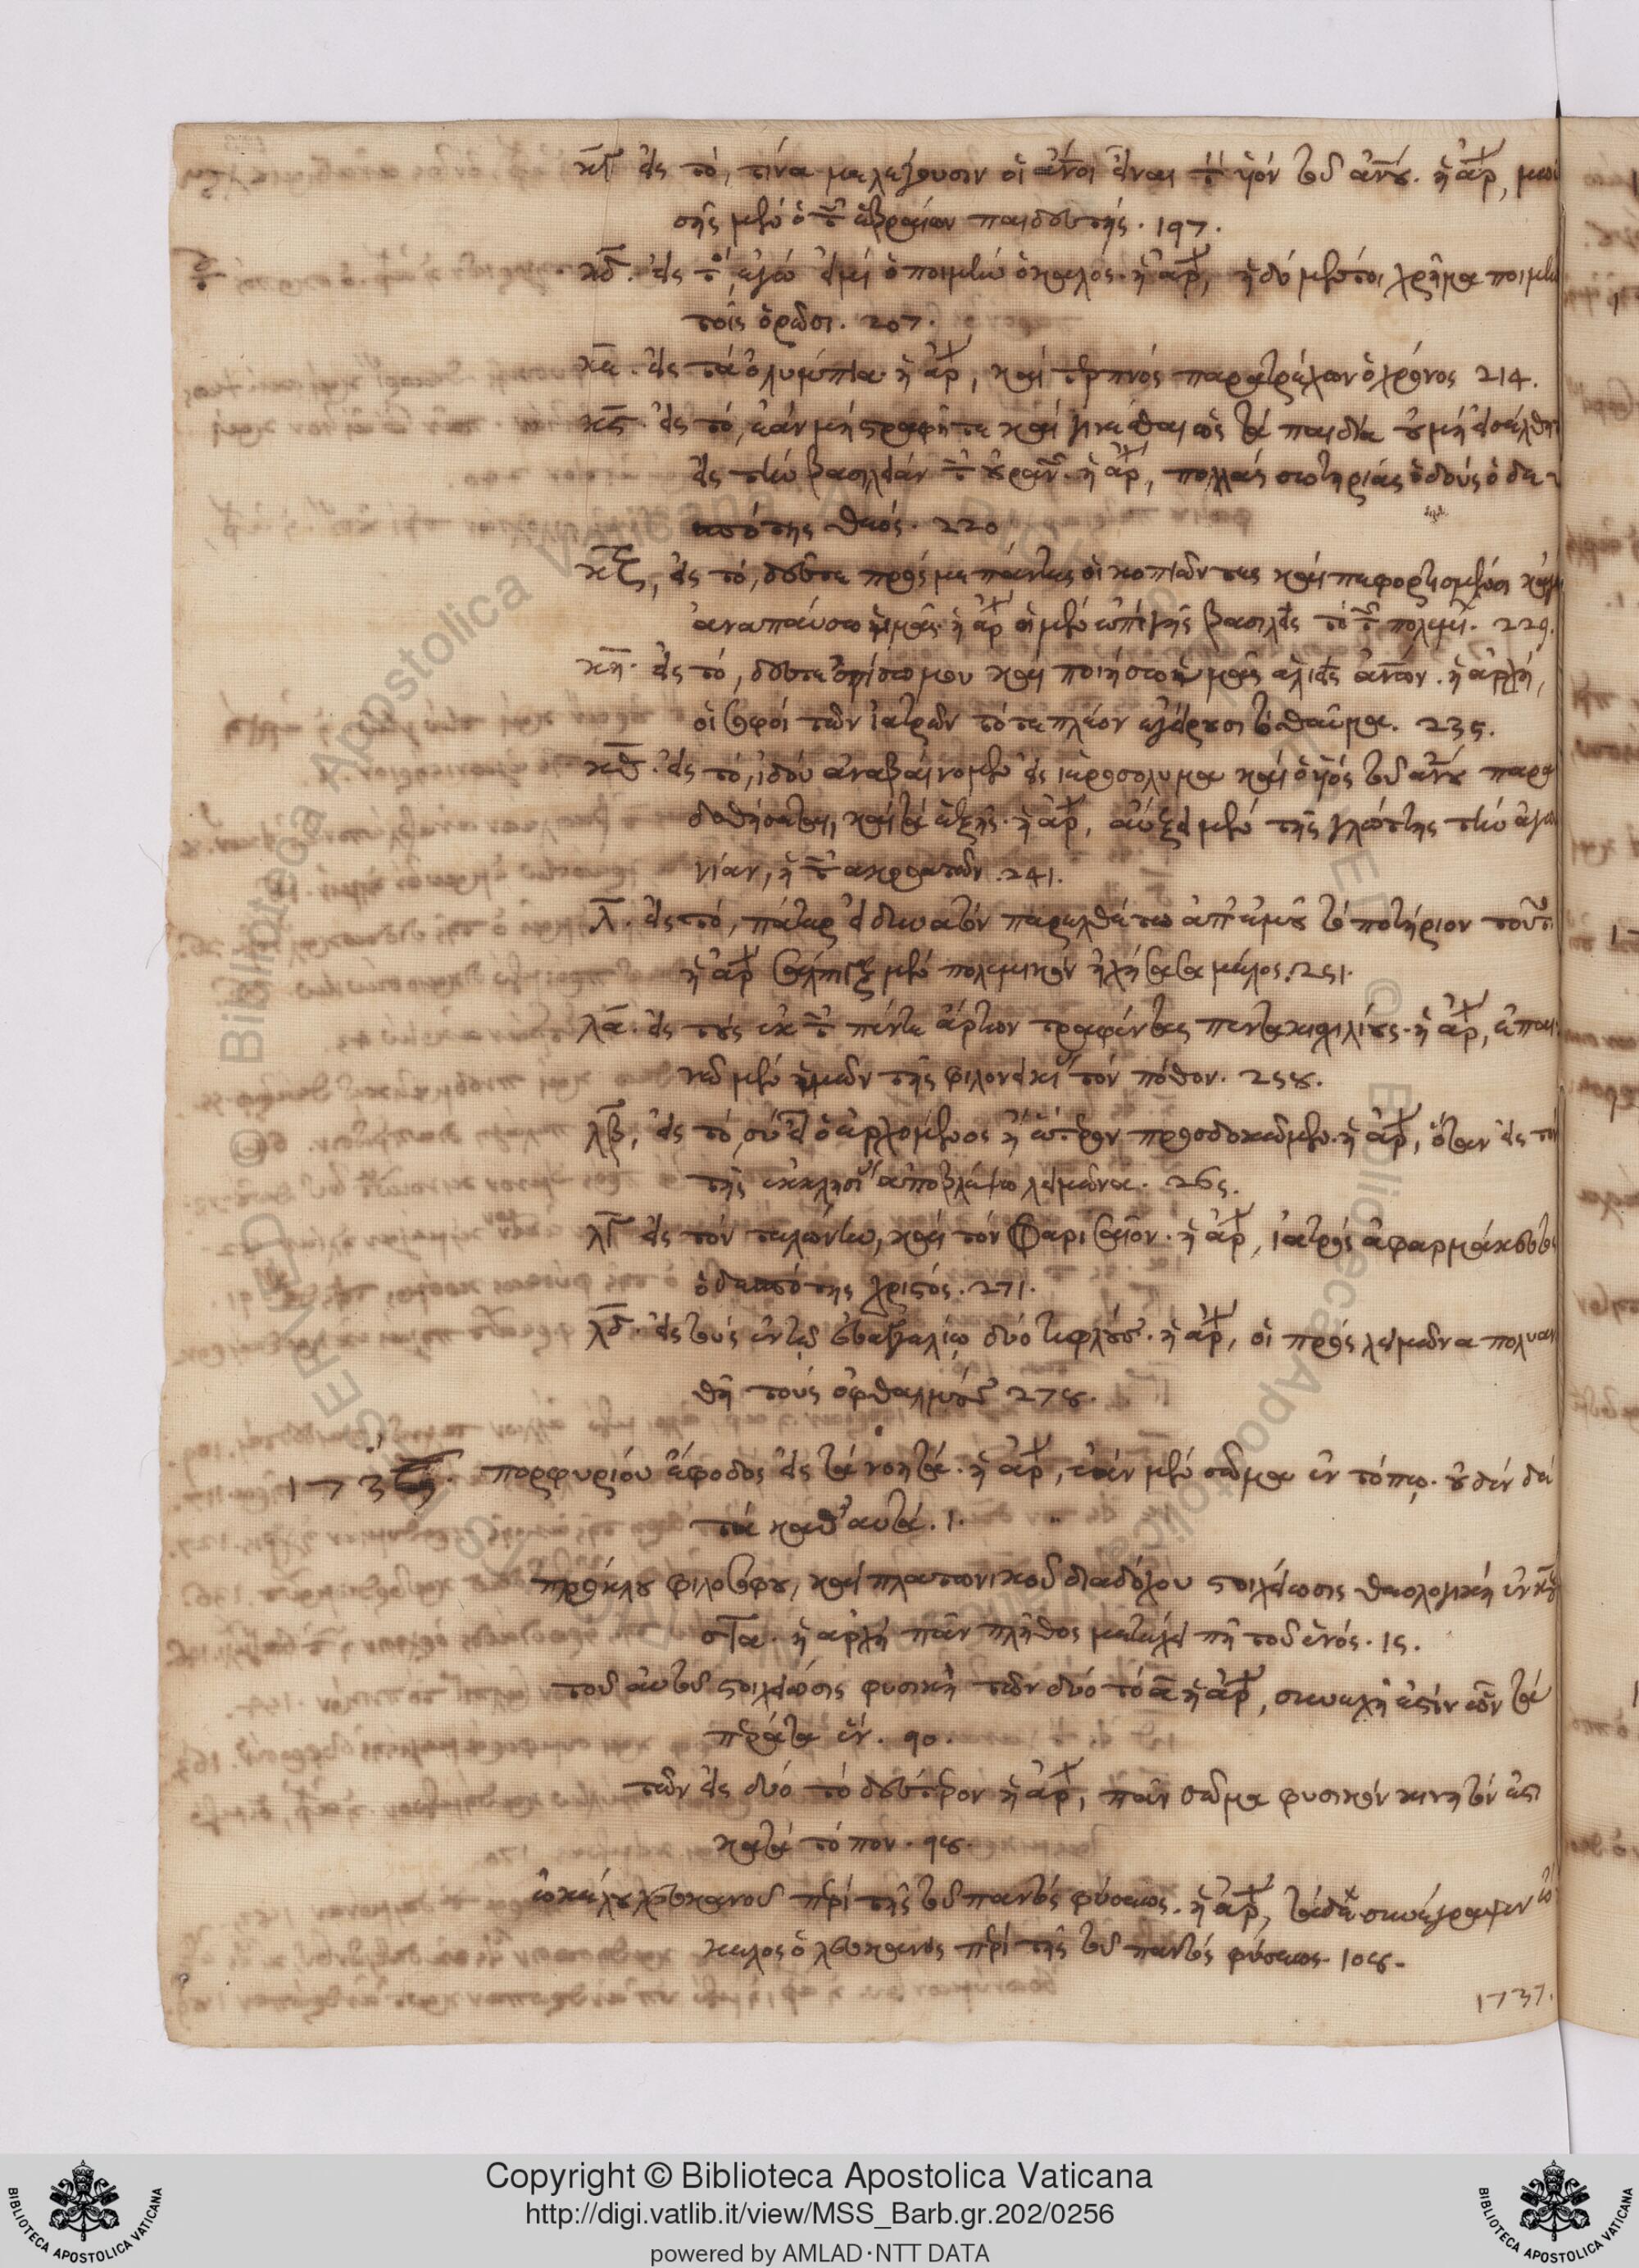 κγ εἰς τό, τίνα με λέγουσιν οἱ ἄνοι εἶναι τ υἱόν τοῦ ἀνου. ἡ ἀρχ, μωϋ
σῆς μέν ὁ τ ἑβραίων παιδευτής. 197.
κδ. εἰς τό, ἐγώ εἰμί ὁ ποιμήν ὁ καλός. ἡ ἀρχ, ἡδύ μέν τοι χρῆμα ποιμήν
τοῖς ὁρῶσι. 207.
κε. εἰς τά ὀλυμπια ἡ ἀρχ, καί τερπνός παρατρέχων ὁ χρόνος 214.
κς. εἰς τό, ἐάν μή στραφῆτε καί γίνεσθαι ὡς τά παιδία οὐ μή εἰσέλθητ
εἰς τήν βασιλείαν τ οὐραν. ἡ ἀρχ, πολλάς σωτηρίας ὁδούς ὁ δε
σπότης θεός. 220
κζ, εἰς τό, δεῦτε πρός με πάντες οἱ κοπιῶντες καί πεφορτισμένοι κἀγώ
ἀναπαύσω ὑμᾶς. ἡ ἀρχ οἱ μέν ἐπί γῆς βασιλεῖς τό τ πολεμι. 229.
κη. εἰς τό, δεῦτε ὀπίσω μου καί ποιήσω ὑμᾶς ἁλιεῖς ἀνων. ἡ ἀρχή,
οἱ σοφοί τῶν ἰατρῶν τότε πλέον ἐγείρουσι τό θαῦμα. 235.
κθ. εἰς τό, ἰδού ἀναβαίνομεν εἰς ιεροσολυμα καί ὁ υἱός τοῦ ανου παρα
δοθήσεται, καί τά ἑξῆς. ἡ ἀρχ, αὔξει μέν τῆς γλώττης τήν ἀγω
νίαν, ἡ τ ακροατῶν. 241.
λ. εἰς τό, πάτερ εἰ δυνατόν παρελθέτω ἀπ' ἐμοῦ τό ποτήριον τοῦτο
ἡ ἀρχ σάλπιγξ μέν πολεμικόν ἠχήσασα μέλος. 251.
λα. εἰς τούς ἐκ τ πέντε ἄρτων τραφέντας πεντακισχιλίους. ἡ ἀρχ, ἐπαι
νῶ μέν ἡμῶν τῆς φιλονεικί τόν πόθον. 258.
λβ, εἰς τό, σύ εἶ ὁ ἐρχόμενος ἤ ἕτερον προσδοκῶμεν. ἡ ἀρχ, ὅταν εἰς τόν
τῆς ἐκκλησί ἀποβλέψω λειμῶνα. 265.
λγ εἰς τόν τελώνην, καί τόν Φαρισαῖον. ἡ ἀρχ, ἰατρός ἀφαρμάκευτος
ὁ δεσπότης χριστός. 271.
λδ. εἰς τούς ἐν τῷ εὐαγγελίῳ δύο τυφλούς. ἡ ἀρχ, οἱ πρός λειμῶνα πολυαν
θῆ τούς ὀφθαλμούς 278.
173ζ. πορφυρίου ἔφοδος εἰς τά νοητά. ἡ ἀρχ, ἐάν μέν σῶμα ἐν τόπῳ. οὐδέν δέ
τά καθ' αυτά. 1.
πρόκλου φιλοσόφου, καί πλατωνικοῦ διαδόχου στοιχείωσις θεολογική ἐν κεφ
σια. ἡ ἀρχή πᾶν πλῆθος μετέχει πῆ τοῦ ἑνός. 15.
τοῦ αυτοῦ στοιχείωσις φυσική τῶν δύο τό α ἡ ἀρχ, συνεχῆ ἐστίν ὧν τά
πέρατα ἕν. 90.
τῶν εἰς δύο τό δεύτερον ἡ ἀρχ, πᾶν σῶμα φυσικόν κινητόν ἐστι
κατά τόπον. 98.
ὠκέλου λευκανοῦ περί τῆς τοῦ παντός φύσεως. ἡ ἀρχ, τάδε συνέγραψεν ὤ
κελος ὁ λευκανός περί τῆς τοῦ παντός φύσεως. 108.
1737.
Copyright © Biblioteca Apostolica Vaticana
http://digi.vatlib.it/view/MSS_Barb.gr.202/0256
powered by AMLAD·NTT DATA
BIBLIOTECA APOSTOLICA VATICANA
BIBLIOTECA APOSTOLICA VATICANA